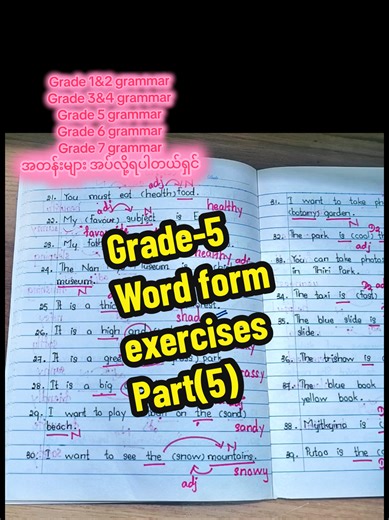 Grade 1&2 grammar
Grade 3&4 grammar
Grade 5 grammar
Grade 6 grammar
Grade 7 grammar
အတန်းများ အပ်လို့ရပါတယ်ရှင်
Grade-5
Word form
exercises
Part(5)
adj N
21. You must eat (health) food.
healthy
adj N
22. My (favour) subject is E
favourite
23. My fath
healthy
24. The Nan museum is
museum.
N
25 It is a thic
shad
26. It is a high (and
27. It is a gre park.
assy
28. It is a big
29. I want to play on the (sand)
beach.
N
sandy
30. I want to see the (snow) mountains.
adj
N
snowy
31. I want to take ph
(botany) garden.
N
32. The park is (cool) th
adj
33. You can take photos
in Thiri Park.
34. The taxi is (fast)
35. The blue slide is
slide.
36. The trishaw is
37. The blue book
yellow book.
38. Myitkyina is c
39. Putao is the c